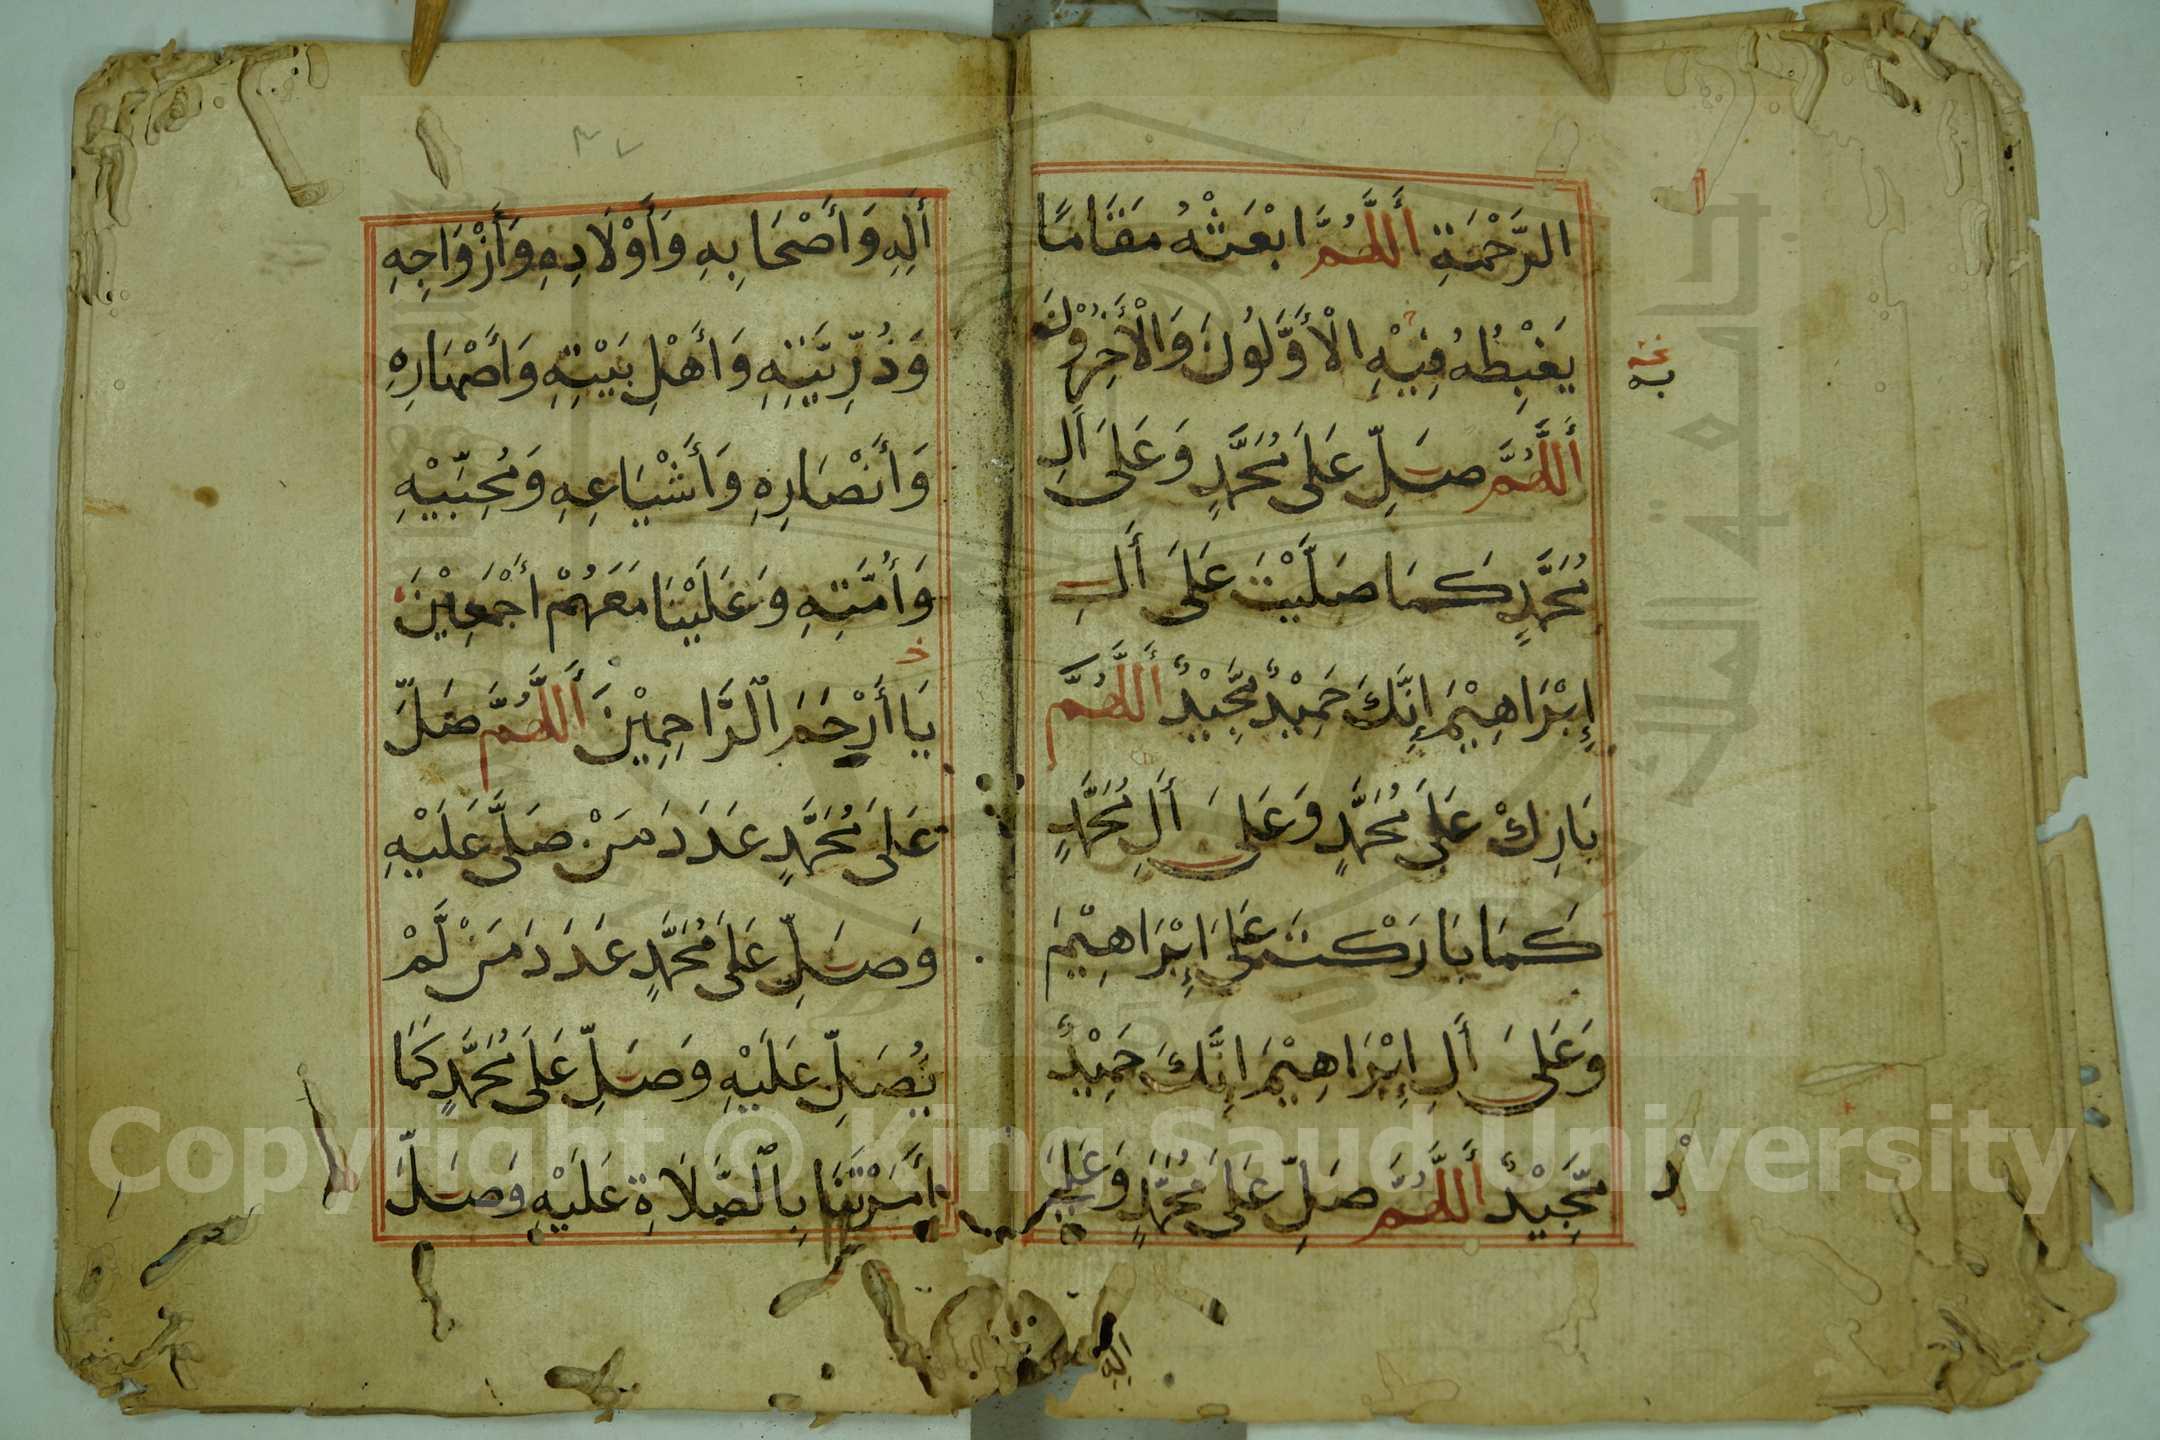 الرَّحْمَةِ أَللَّهُمَّ ابْعَثْهُ مَقَامًا
يَغْبِطُهُ فِيْهِ الْأَوَّلُونَ وَالْأَخِرُوْنَ
أَللَّهُمَّ صَلِّ عَلَى مُحَمَّدٍ وَعَلَى أَلِ
مُحَمَّدٍ كَمَا صَلَّيْتَ عَلَى أَلِ
إِبْرَاهِيْمَ إِنَّكَ حَمِيْدٌ مَّجِيْدٌ أَللَّهُمَّ
بَارِكْ عَلَى مُحَمَّدٍ وَعَلَى أَلِ مُحَمَّدٍ
كَمَا بَارَكْتَ عَلَى إِبْرَاهِيْمَ
وَعَلَى أَلِ إِبْرَاهِيْمَ اِنَّكَ حَمِيْدٌ
مَّجِيْدٌ أَللَّهُمَّ صَلِّ عَلَى مُحَمَّدٍ وَعَلَى
اَلِهِ
أَلِهِ وَأَصْحَابِهِ وَأَوْلَادِهِ وَأَزْوَاجِهِ
وَذُرِّيَّتِهِ وَأَهْلِ بَيْتِهِ وَأَصْهَارِهِ
وَأَنْصَارِهِ وَأَشْيَاعِهِ وَمُحِبِّيْهِ
وَأُمَّتِهِ وَعَلَيْنَا مَعَهُمْ أَجْمَعِيْنَ
يَا أَرْحَمَ الرَّاحِمِيْنَ أَللَّهُمَّ صَلِّ
عَلَى مُحَمَّدٍ عَدَدَ مَنْ صَلَّى عَلَيْهِ
وَصَلِّ عَلَى مُحَمَّدٍ عَدَدَ مَنْ لَّمْ
يُصَلِّ عَلَيْهِ وَصَلِّ عَلَى مُحَمَّدٍ كَمَا
أَمَرْتَنَا بِالصَّلَاةِ عَلَيْهِ وَصَلِّ
Copyright © King Saud University